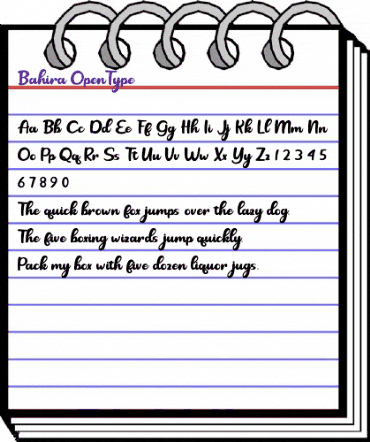 Bahira OpenType
Aa Bb Cc Dd Ee Ff Gg Hh Ii Jj Kk Ll Mm Nn
Oo Pp Qq Rr Ss Tt Uu Vv Ww Xx Yy Zz 1 2 3 4 5
6 7 8 9 0
The quick brown fox jumps over the lazy dog.
The five boxing wizards jump quickly.
Pack my box with five dozen liquor jugs.